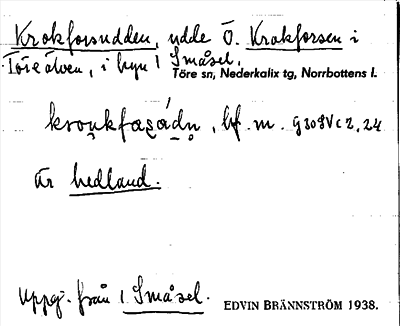 Krokforsudden, udde Ö. Krokforsen i
Töreälven, i byn 1 Småsel.
Töre sn, Nederkalix tg, Norrbottens l.
bf. m. G309Vc2, 24
Är hedland.
Uppg. från 1 Småsel.
EDVIN BRÄNNSTRÖM 1938.